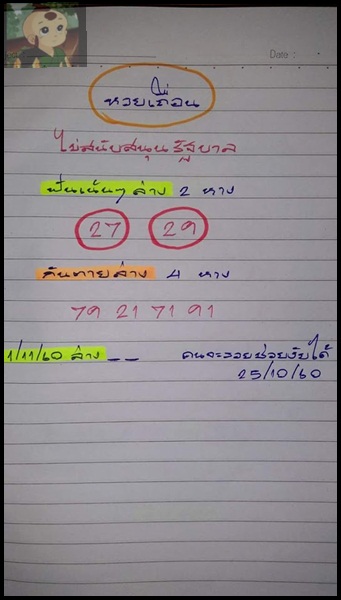 Date :
หวยเถื่อน
ไม่สนับสนุนรัฐบาล
ฟันเน้นๆ ล่าง 2 หาง
27 29
กันตายล่าง 4 หาง
79 21 71 91
1/11/60 ล่าง _ _ คนจะรวยช่วยงับได้
25/10/60